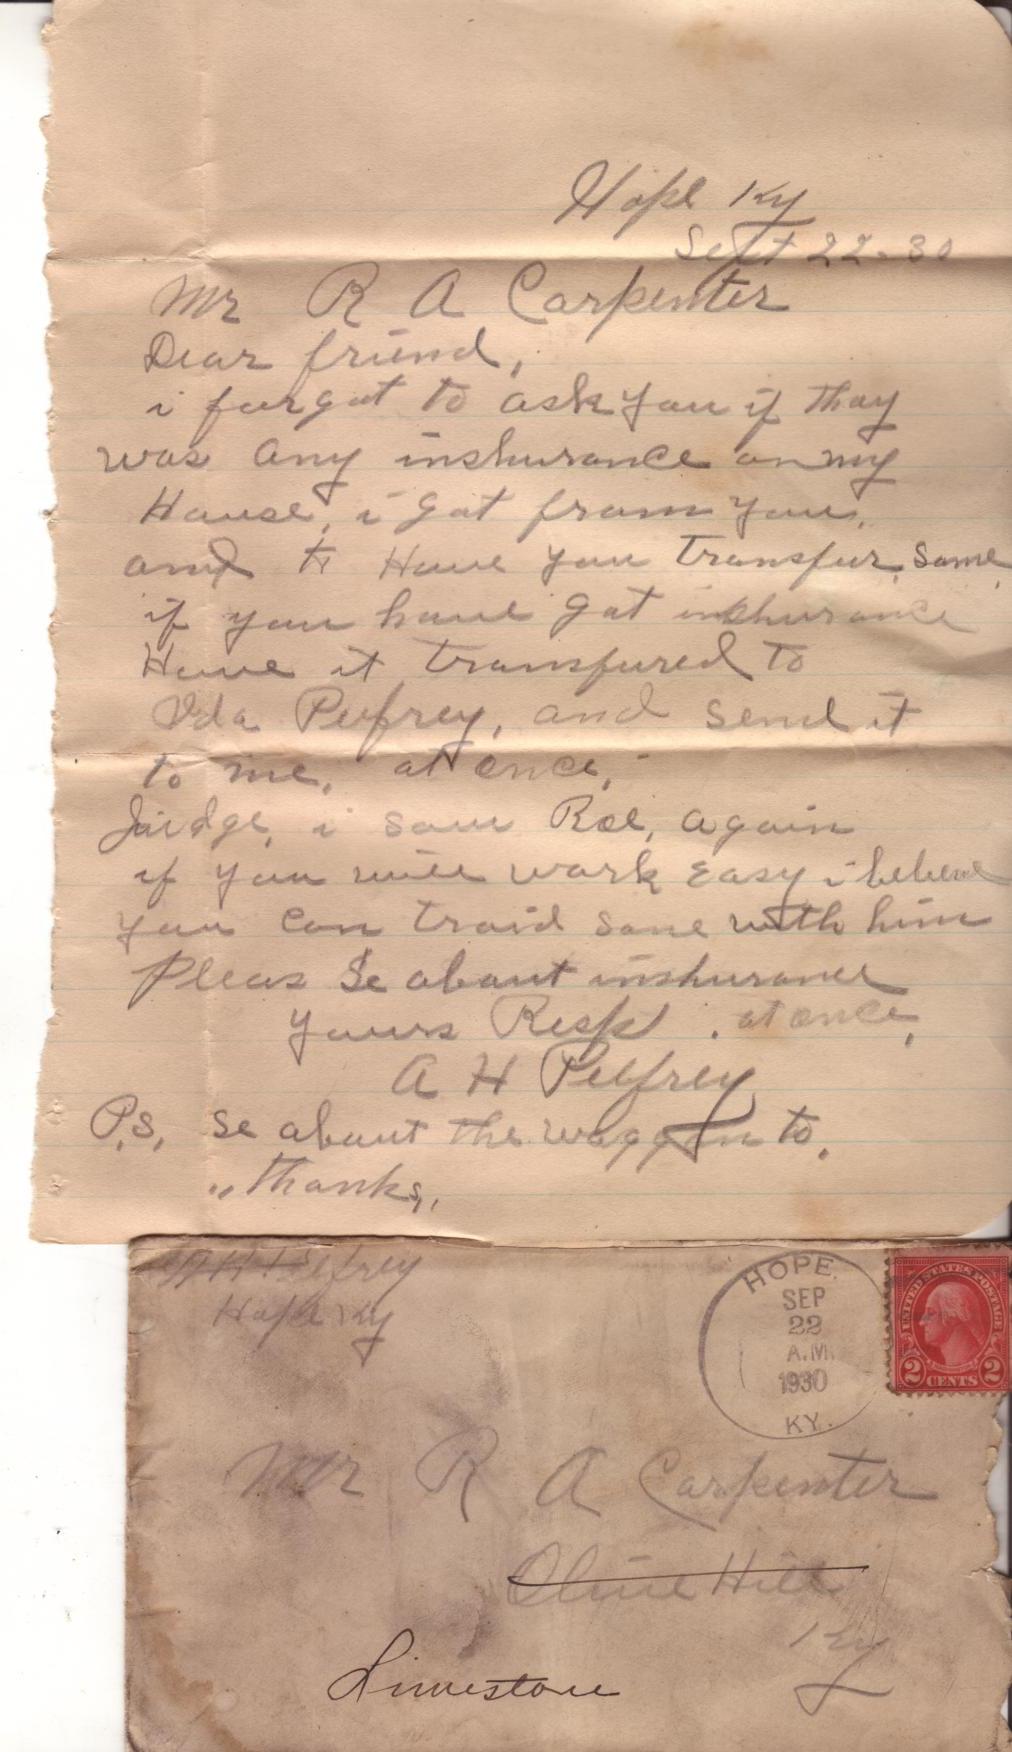 Hope Ky
Sept 22-30
Mr R A Carpenter
Dear friend,
i forgot to ask you if thay
was any inshurance on my
House, i got from you,
and to Have you transfur, Same,
if you have got inshurance
Have it transfured to
Ida Pelfrey, and send it
to me, at once,
Juidge, i saw Roe, again
if you will work easy i beleve
you can traid some with him
Pleas Se about inshurance
yours Resp. at once,
A H Pelfrey
P.S. se about the waggon to.
"thanks,,
A H Pelfrey
Hope Ky
HOPE.
SEP
22
A.M.
1930
KY.
UNITED STATES POSTAGE
2 CENTS 2
Mr R A Carpenter
Olive Hill
Ky
Limestone